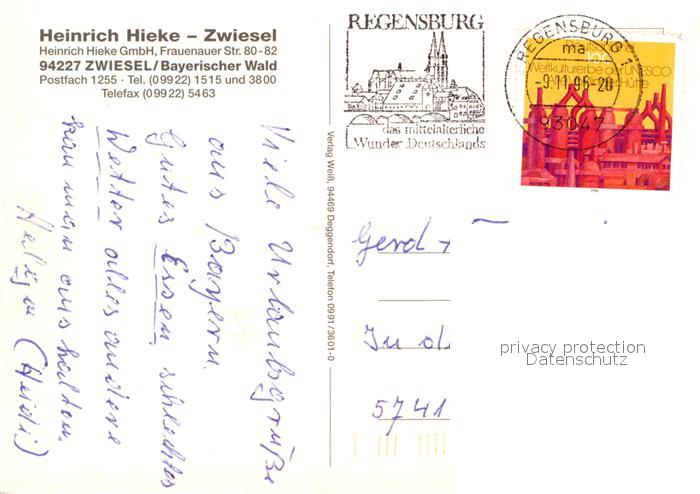 Heinrich Hieke – Zwiesel
Heinrich Hieke GmbH, Frauenauer Str. 80-82
94227 ZWIESEL/Bayerischer Wald
Postfach 1255 · Tel. (09922) 1515 und 3800
Telefax (09922) 5463
Viele Urlaubsgrüße
aus Bayern.
Gutes Essen, schlechtes
Wetter alles andere
kan man aushalten.
Helga (Heidi)
Verlag Weiß, 94469 Deggendorf, Telefon 0991/3601-0
REGENSBURG
das mittelalterliche
Wunder Deutschlands
REGENSBURG 1
ma
-9.11.96-20
93047
Deutschland
100
Weltkulturerbe der UNESCO
Völklinger Hütte
1996
Gerd +
In d
5741
privacy protection
Datenschutz